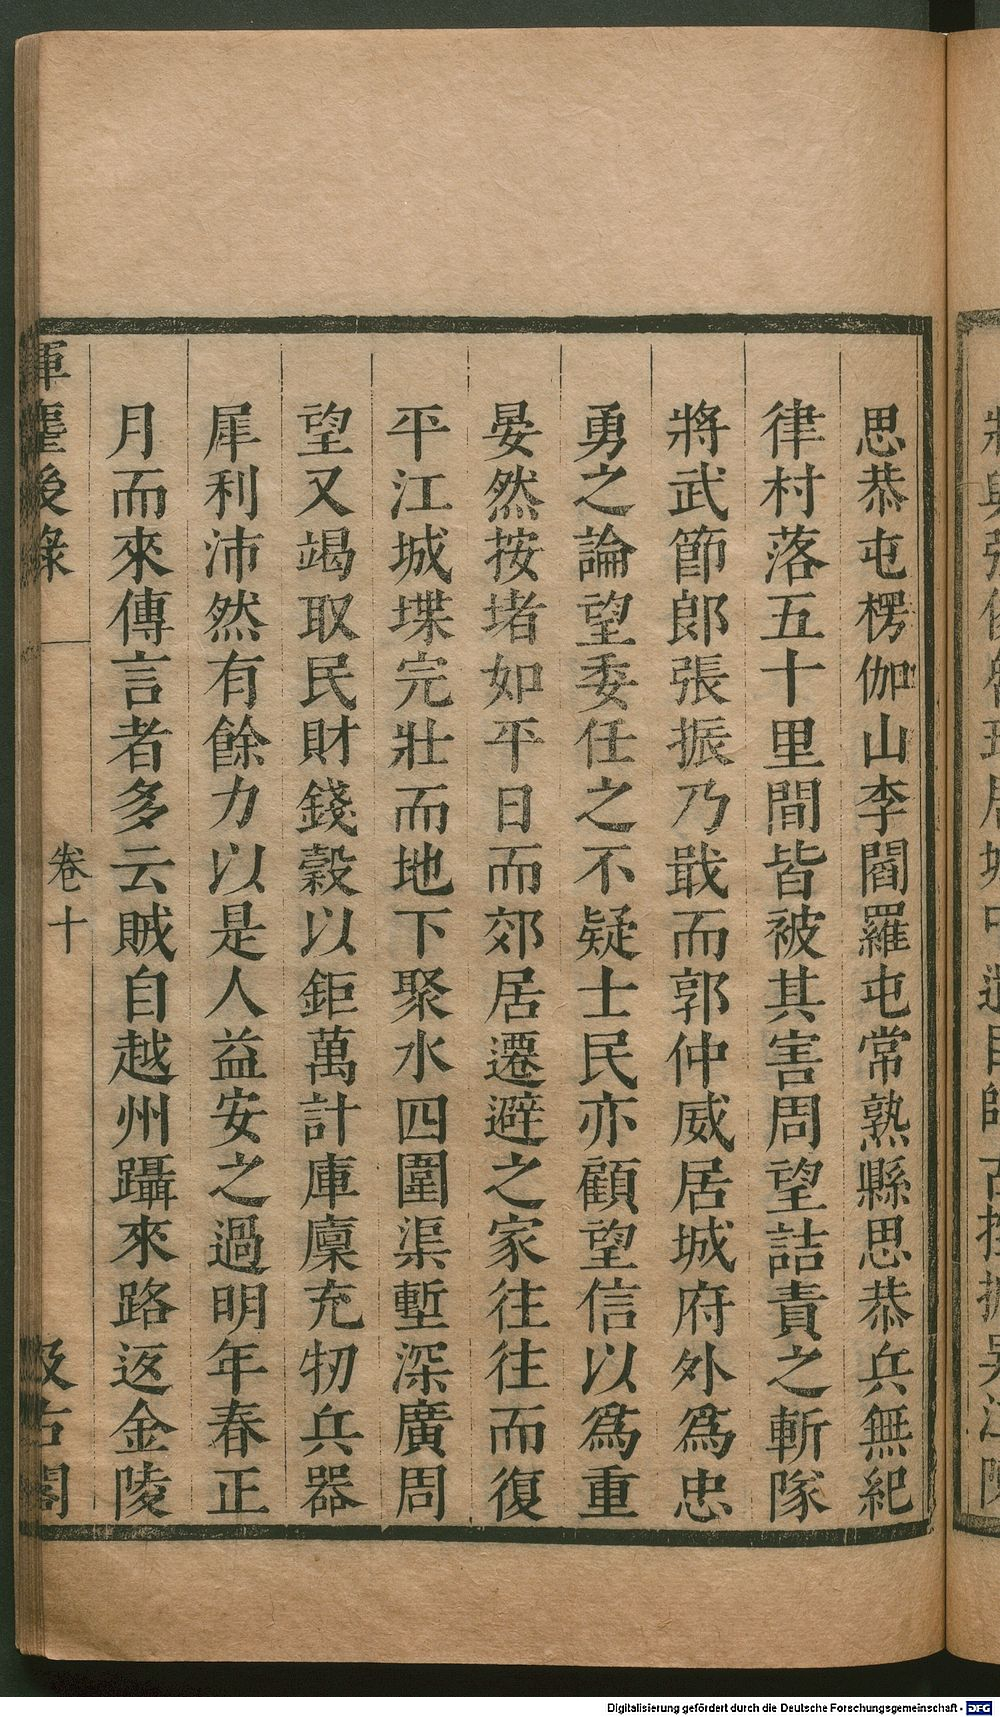 思恭屯楞伽山李閻羅屯常熟縣思恭兵無紀
律村落五十里間皆被其害周望詰責之斬隊
將武節郎張振乃戢而郭仲威居城府外爲忠
勇之論望委任之不疑士民亦顧望信以爲重
晏然按堵如平日而郊居遷避之家往往而復
平江城堞完壯而地下聚水四圍渠塹深廣周
望又竭取民財錢穀以鉅萬計庫廩充牣兵器
犀利沛然有餘力以是人益安之過明年春正
月而來傳言者多云賊自越州躡來路返金陵
揮麈後錄
卷十
汲古閣
Digitalisierung gefördert durch die Deutsche Forschungsgemeinschaft - DFG